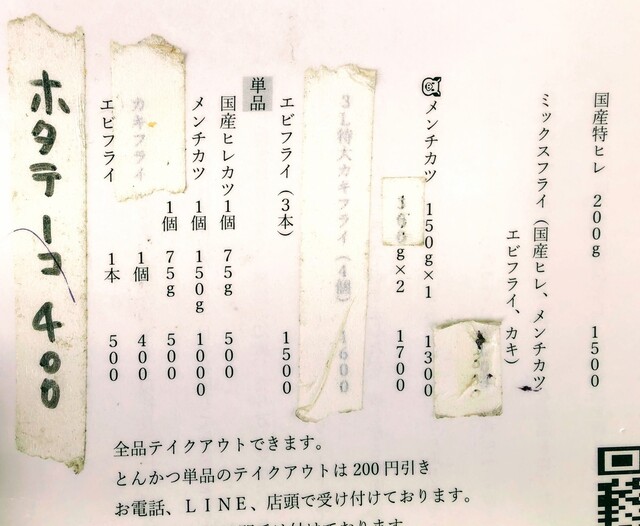 国産特ヒレ 200g 1500
ミックスフライ（国産ヒレ、メンチカツ
エビフライ、カキ）
メンチカツ 150g×1 1300
g×2 1700
3L特大カキフライ（4個） 1600
エビフライ（3本） 1500
単品
国産ヒレカツ 1個 75g 500
メンチカツ 1個 150g 1000
1個 75g 500
カキフライ 1個 400
エビフライ 1本 500
ホタテ 一コ 400
全品テイクアウトできます。
とんかつ単品のテイクアウトは200円引き
お電話、LINE、店頭で受け付けております。